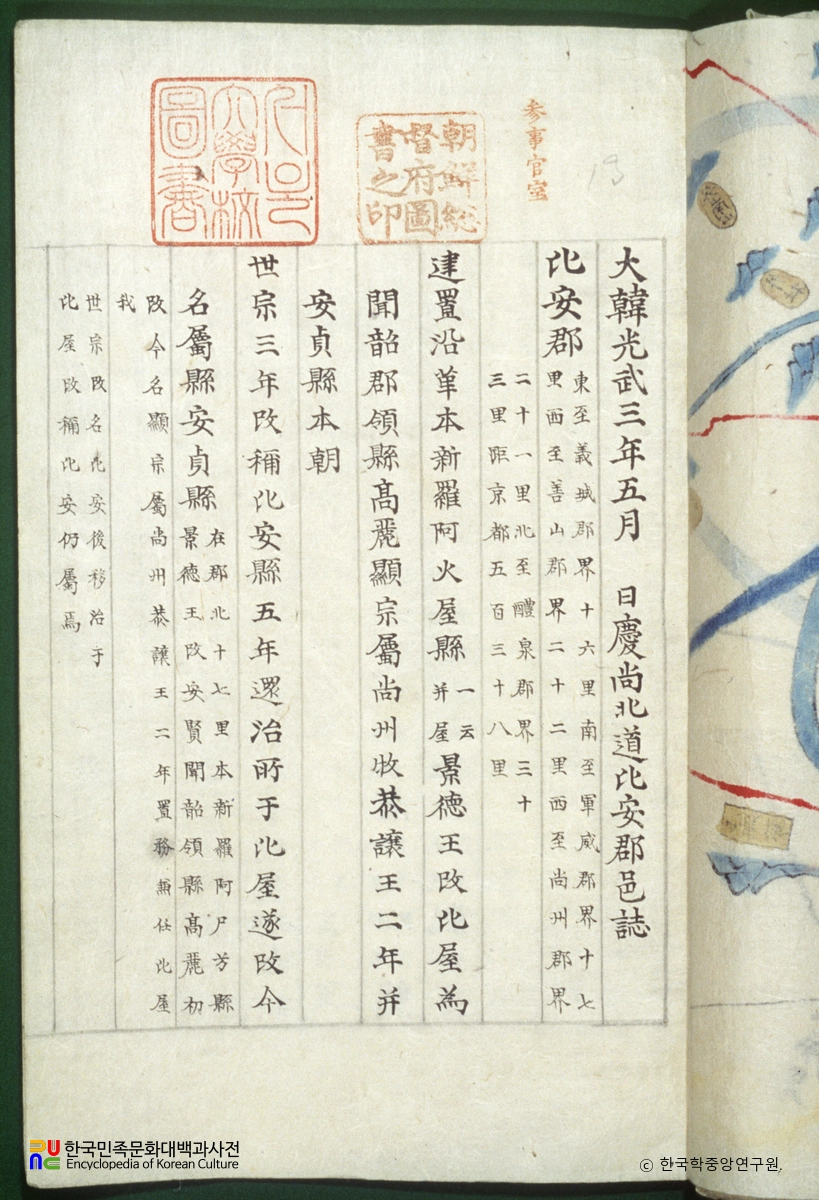 参事官室
朝鮮総
督府圖
書之印
서울
大學校
圖書
大韓光武三年五月 日慶尚北道比安郡邑誌
比安郡 東至義城郡界十六里南至軍威郡界十七
里西至善山郡界二十二里西至尚州郡界
二十一里北至醴泉郡界三十
三里距京都五百三十八里
建置沿革本新羅阿火屋縣 一云 并屋 景德王改比屋為
聞韶郡領縣高麗顯宗屬尚州牧恭讓王二年并
安貞縣本朝
世宗三年改稱比安縣五年還治所于比屋遂改今
名屬縣安貞縣 在郡北十七里本新羅阿尸芳縣
景德王改安賢聞韶領縣高麗初
改今名顯宗屬尚州恭讓王二年置務兼任比屋
我
世宗改名比安後移治于
比屋改稱比安仍屬焉
한국민족문화대백과사전
Encyclopedia of Korean Culture
ⓒ 한국학중앙연구원.